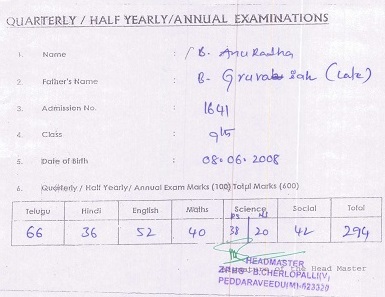 QUARTERLY / HALF YEARLY/ANNUAL EXAMINATIONS
1. Name : B. Anuradha
2. Father's Name : B- (Late)
3. Admission No. : 1641
4. Class : 9th
5. Date of Birth : 08-06-2008
6. Quarterly / Half Yearly/ Annual Exam Marks (100) Total Marks (600)
Telugu Hindi English Maths Science Social Total
PS NS
66 36 52 40 38 20 42 294
HEADMASTER
Head Master
B.CHERLOPALLI(V),
PEDDARAVEEDU(M)-523320